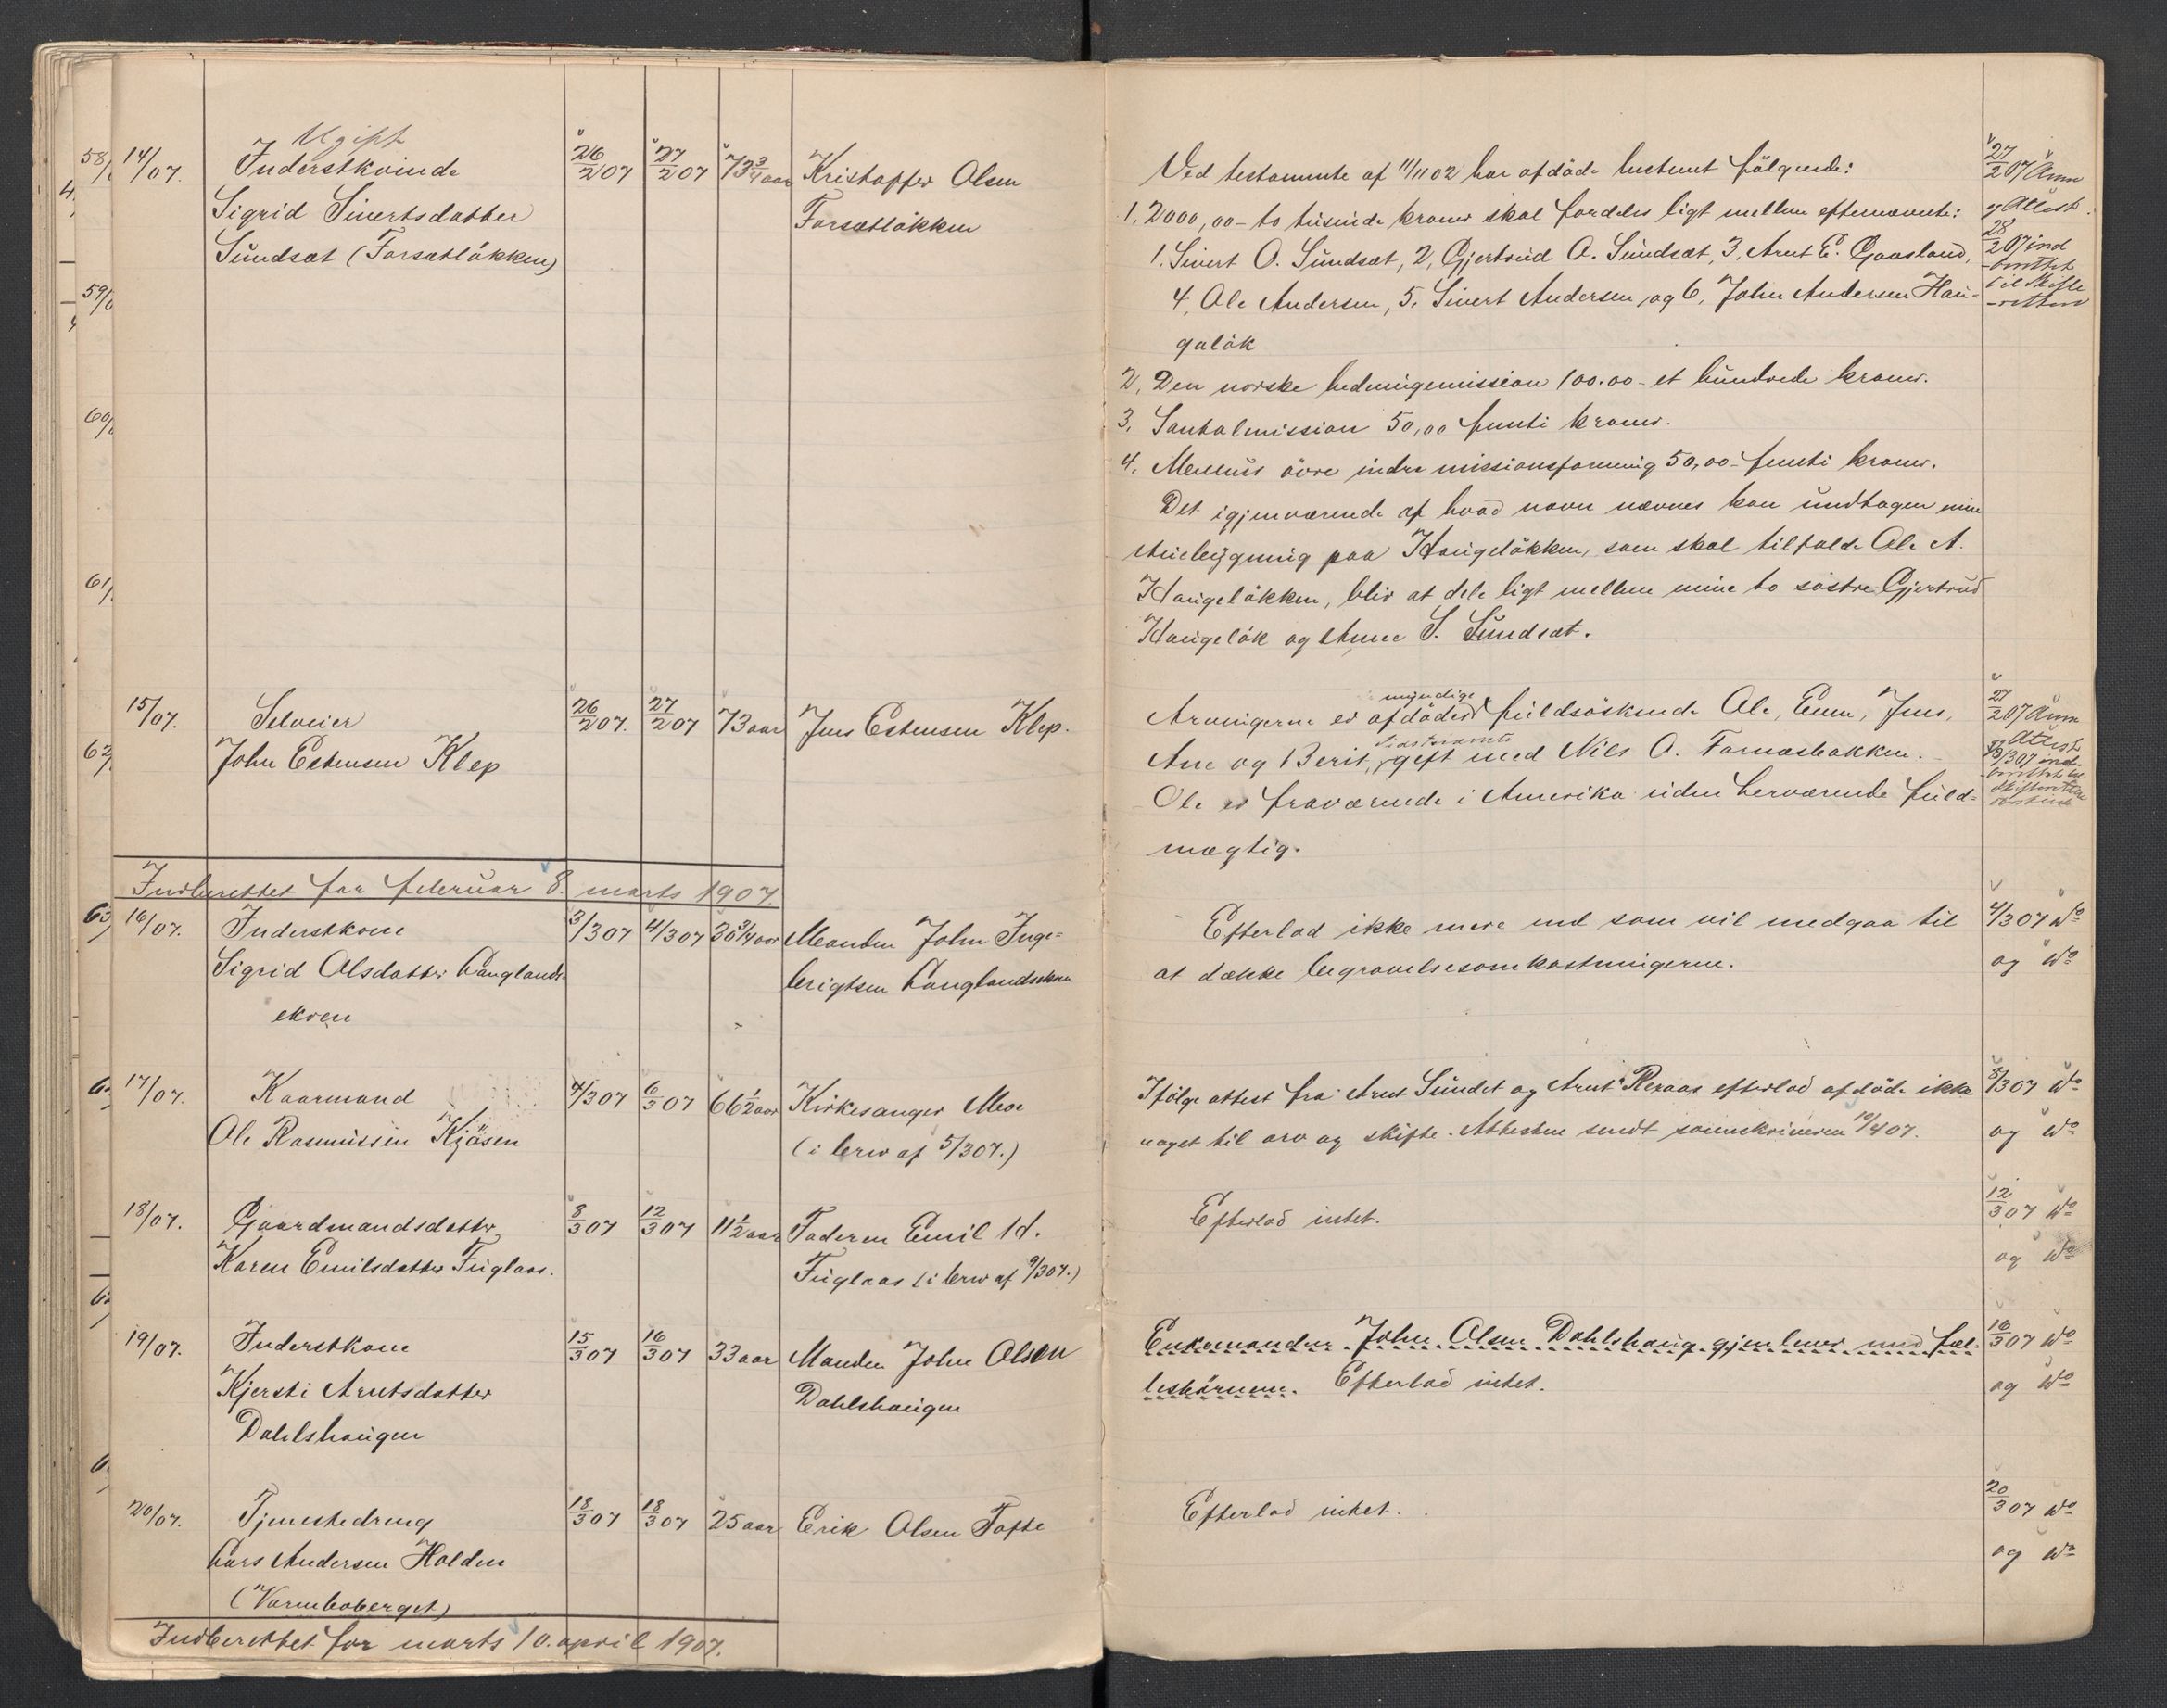 Ugift
14/07. Inderstkvinde 26/2 07 27/2 07 73 3/4 aar Kristoffer Olsen
Sigrid Sivertsdatter Forsætløkken
Sundsæt (Forsætløkken)
15/07. Selveier 26/2 07. 27/2 07 73 aar Jens Estensen Klep.
John Estensen Klep
Indberettet for februar 8. marts 1907.
16/07. Inderstkone 3/3 07 4/3 07 30 3/4 aar Manden John Inge-
Sigrid Olsdatter Langlands- brigtsen Langlandsekren
ekren
17/07. Kaarmand 4/3 07 6/3 07 66 1/2 aar Kirkesanger Moe
Ole Rasmussen Kjøsen (i brev af 5/3 07.)
18/07. Gaardmandsdatter 8/3 07 12/3 07 11 1/2 aar Faderen Emil H.
Karen Emilsdatter Fuglaas. Fuglaas (i brev af 9/3 07.)
19/07. Inderstkone 15/3 07 16/3 07 33 aar Manden John Olsen
Kjersti Arntsdatter Dahlshaugen
Dahlshaugen
20/07. Tjenestedreng 18/3 07 18/3 07 25 aar Erik Olsen Tofte
Lars Andersen Holden
(Varmboberget)
Indberettet for marts 10. april 1907.
Ved testamente af 11/11 02 har afdøde bestemt følgende: 27/2 07 Anm
1, 2000,00 - to tusinde kroner skal fordeles ligt mellem efternævnte: og Attest.
1. Sivert O. Sundsæt, 2, Gjertrud O. Sundsæt, 3, Arnt E. Gaasland, 28/2 07 ind
4, Ole Andersen, 5, Sivert Andersen og 6, John Andersen Hau- -berettet til Skifte
geløk -retten
2, Den norske hedningemission 100.00 - et hundrede kroner.
3, Santalmission 50,00 femti kroner.
4, Melhus øvre indre missionsforening 50,00 - femti kroner.
Det igjenværende af hvad navn nævnes kan undtagen min
stuebygning paa Haugeløkken, som skal tilfalde Ole A.
Haugeløkken, blir at dele ligt mellem mine to søstre Gjertrud
Haugeløk og Anne S. Sundsæt.
myndige
Arvingerne er afdødes fuldsøskende Ole, Even, Jens, 27/2 07 Anm
sidstnævnte
Ane og Berit, gift med Nils O. Fornæsbakken. og Attest
Ole er fraværende i Amerika uden herværende fuld-
mægtig.
Efterlod ikke mere end som vil medgaa til 4/3 07 do
at dække begravelsesomkostningerne. og do
Ifølge attest fra Arnt Sundet og Arnt Reraas efterlod afdøde ikke 5/3 07 do
noget til arv og skifte. Attesten sendt sorenskriveren 10/4 07. og do
Efterlod intet. 12/3 07 do
og do
Enkemanden John Olsen Dahlshaug gjenlever med fæl- 16/3 07 do
lesbørnene. Efterlod intet. og do
Efterlod intet. 20/3 07 do
og do